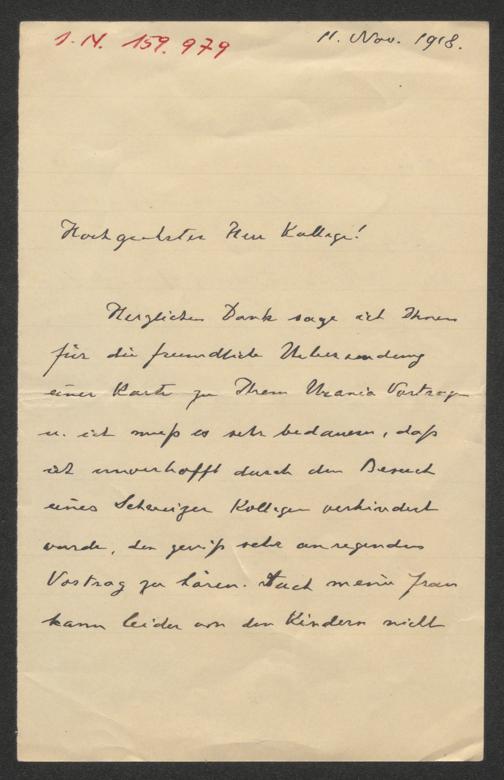 I. N. 159.979
11. Nov. 1918.
Hochgeehrter Herr Kollege!
Herzlichen Dank sage ich Ihnen
für die freundliche Uebersendung
einer Karte zu Ihrem Urania Vortrage
u. ich muß es sehr bedauern, daß
ich unverhofft durch den Besuch
eines Schweizer Kollegen verhindert
wurde, den gewiß sehr anregenden
Vortrag zu hören. Auch meine Frau
kann leider von den Kindern nicht